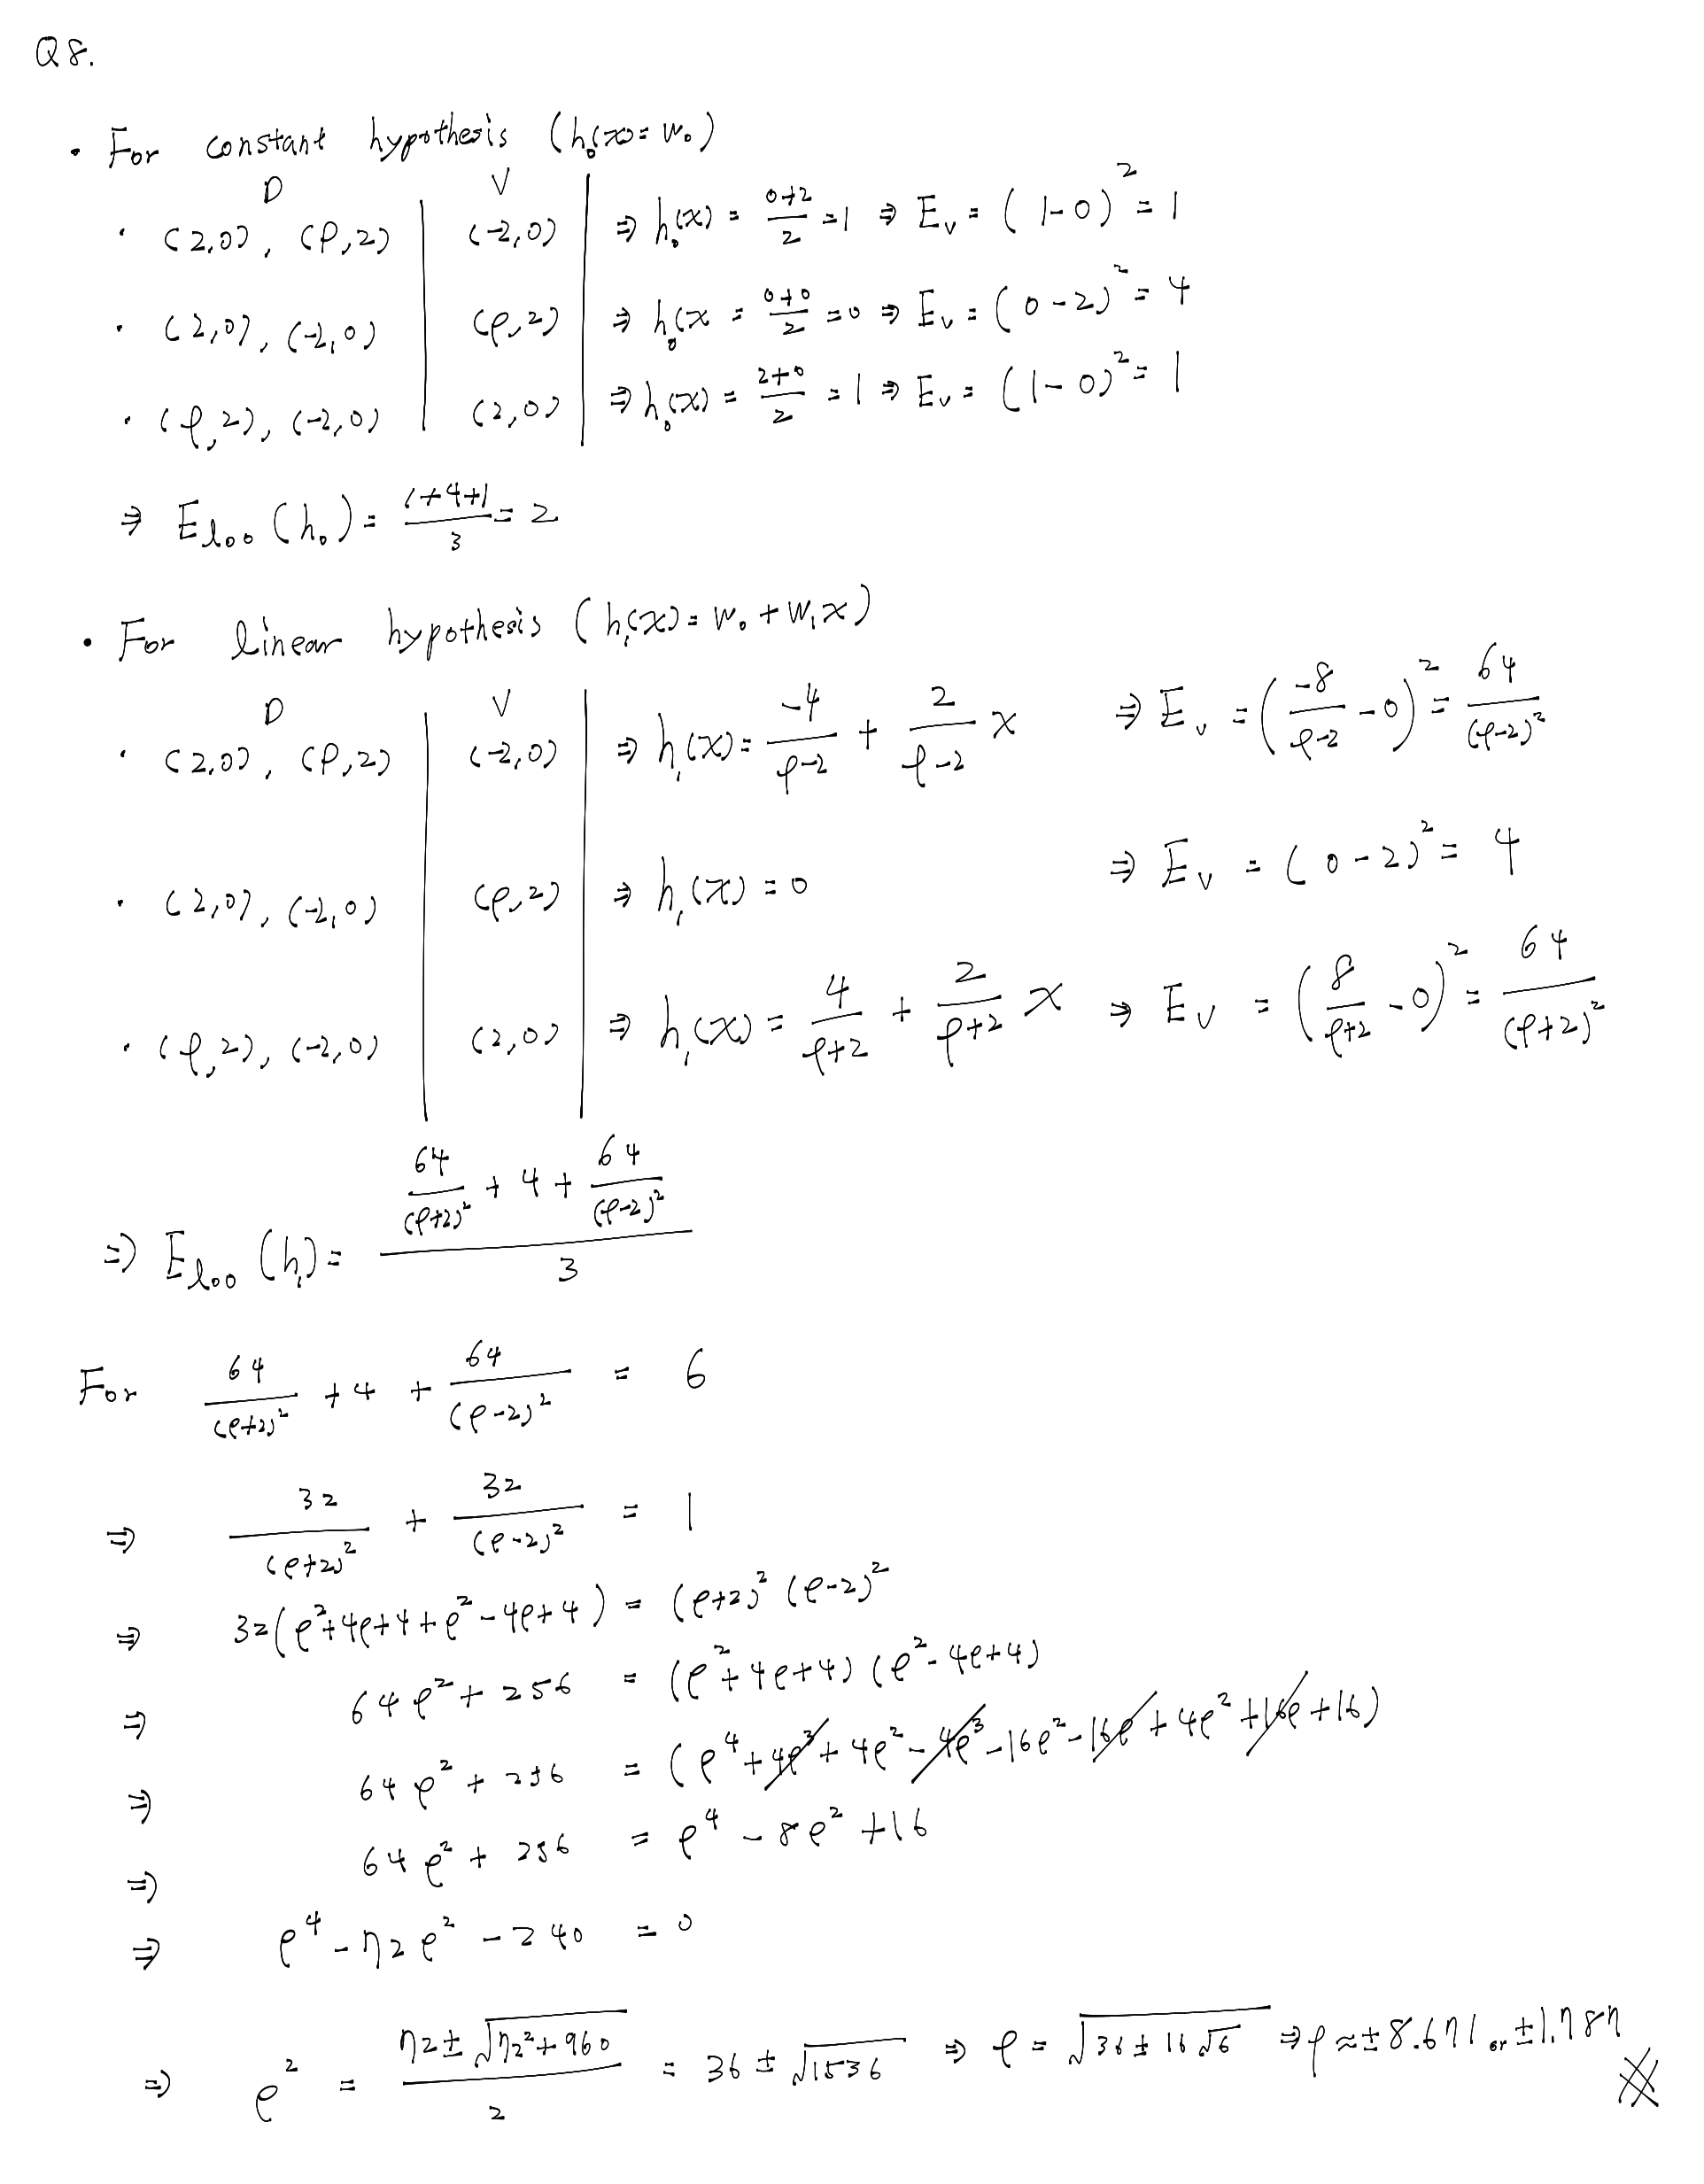 Q8.
• For constant hypothesis (h₀(x)=w₀)
D V
• (2,0), (ρ,2) | (-2,0) | ⇒ h₀(x) = (0+2)/2 = 1 ⇒ E_v = (1-0)² = 1
• (2,0), (-2,0) | (ρ,2) | ⇒ h₀(x = (0+0)/2 = 0 ⇒ E_v = (0-2)² = 4
• (ρ,2), (-2,0) | (2,0) | ⇒ h₀(x) = (2+0)/2 = 1 ⇒ E_v = (1-0)² = 1
⇒ E_loo (h₀) = (1+4+1)/3 = 2
• For linear hypothesis (h₁(x) = w₀ + w₁x)
D V
• (2,0), (ρ,2) | (-2,0) | ⇒ h₁(x) = -4/(ρ-2) + 2/(ρ-2) x ⇒ E_v = (-8/(ρ-2) - 0)² = 64/(ρ-2)²
• (2,0), (-2,0) | (ρ,2) | ⇒ h₁(x) = 0 ⇒ E_v = (0-2)² = 4
• (ρ,2), (-2,0) | (2,0) | ⇒ h₁(x) = 4/(ρ+2) + 2/(ρ+2) x ⇒ E_v = (8/(ρ+2) - 0)² = 64/(ρ+2)²
⇒ E_loo (h₁) = (64/(ρ+2)² + 4 + 64/(ρ-2)²)/3
For 64/(ρ+2)² + 4 + 64/(ρ-2)² = 6
⇒ 32/(ρ+2)² + 32/(ρ-2)² = 1
⇒ 32(ρ²+4ρ+4+ρ²-4ρ+4) = (ρ+2)² (ρ-2)²
⇒ 64ρ² + 256 = (ρ²+4ρ+4) (ρ²-4ρ+4)
⇒ 64ρ² + 256 = (ρ⁴+4ρ³+4ρ²-4ρ³-16ρ²-16ρ+4ρ²+16ρ+16)
⇒ 64ρ² + 256 = ρ⁴ - 8ρ² + 16
⇒ ρ⁴ - 72ρ² - 240 = 0
⇒ ρ² = (72 ± √(72²+960))/2 = 36 ± √1536 ⇒ ρ = √(36 ± 16√6) ⇒ ρ ≈ ±8.671 or ±1.787